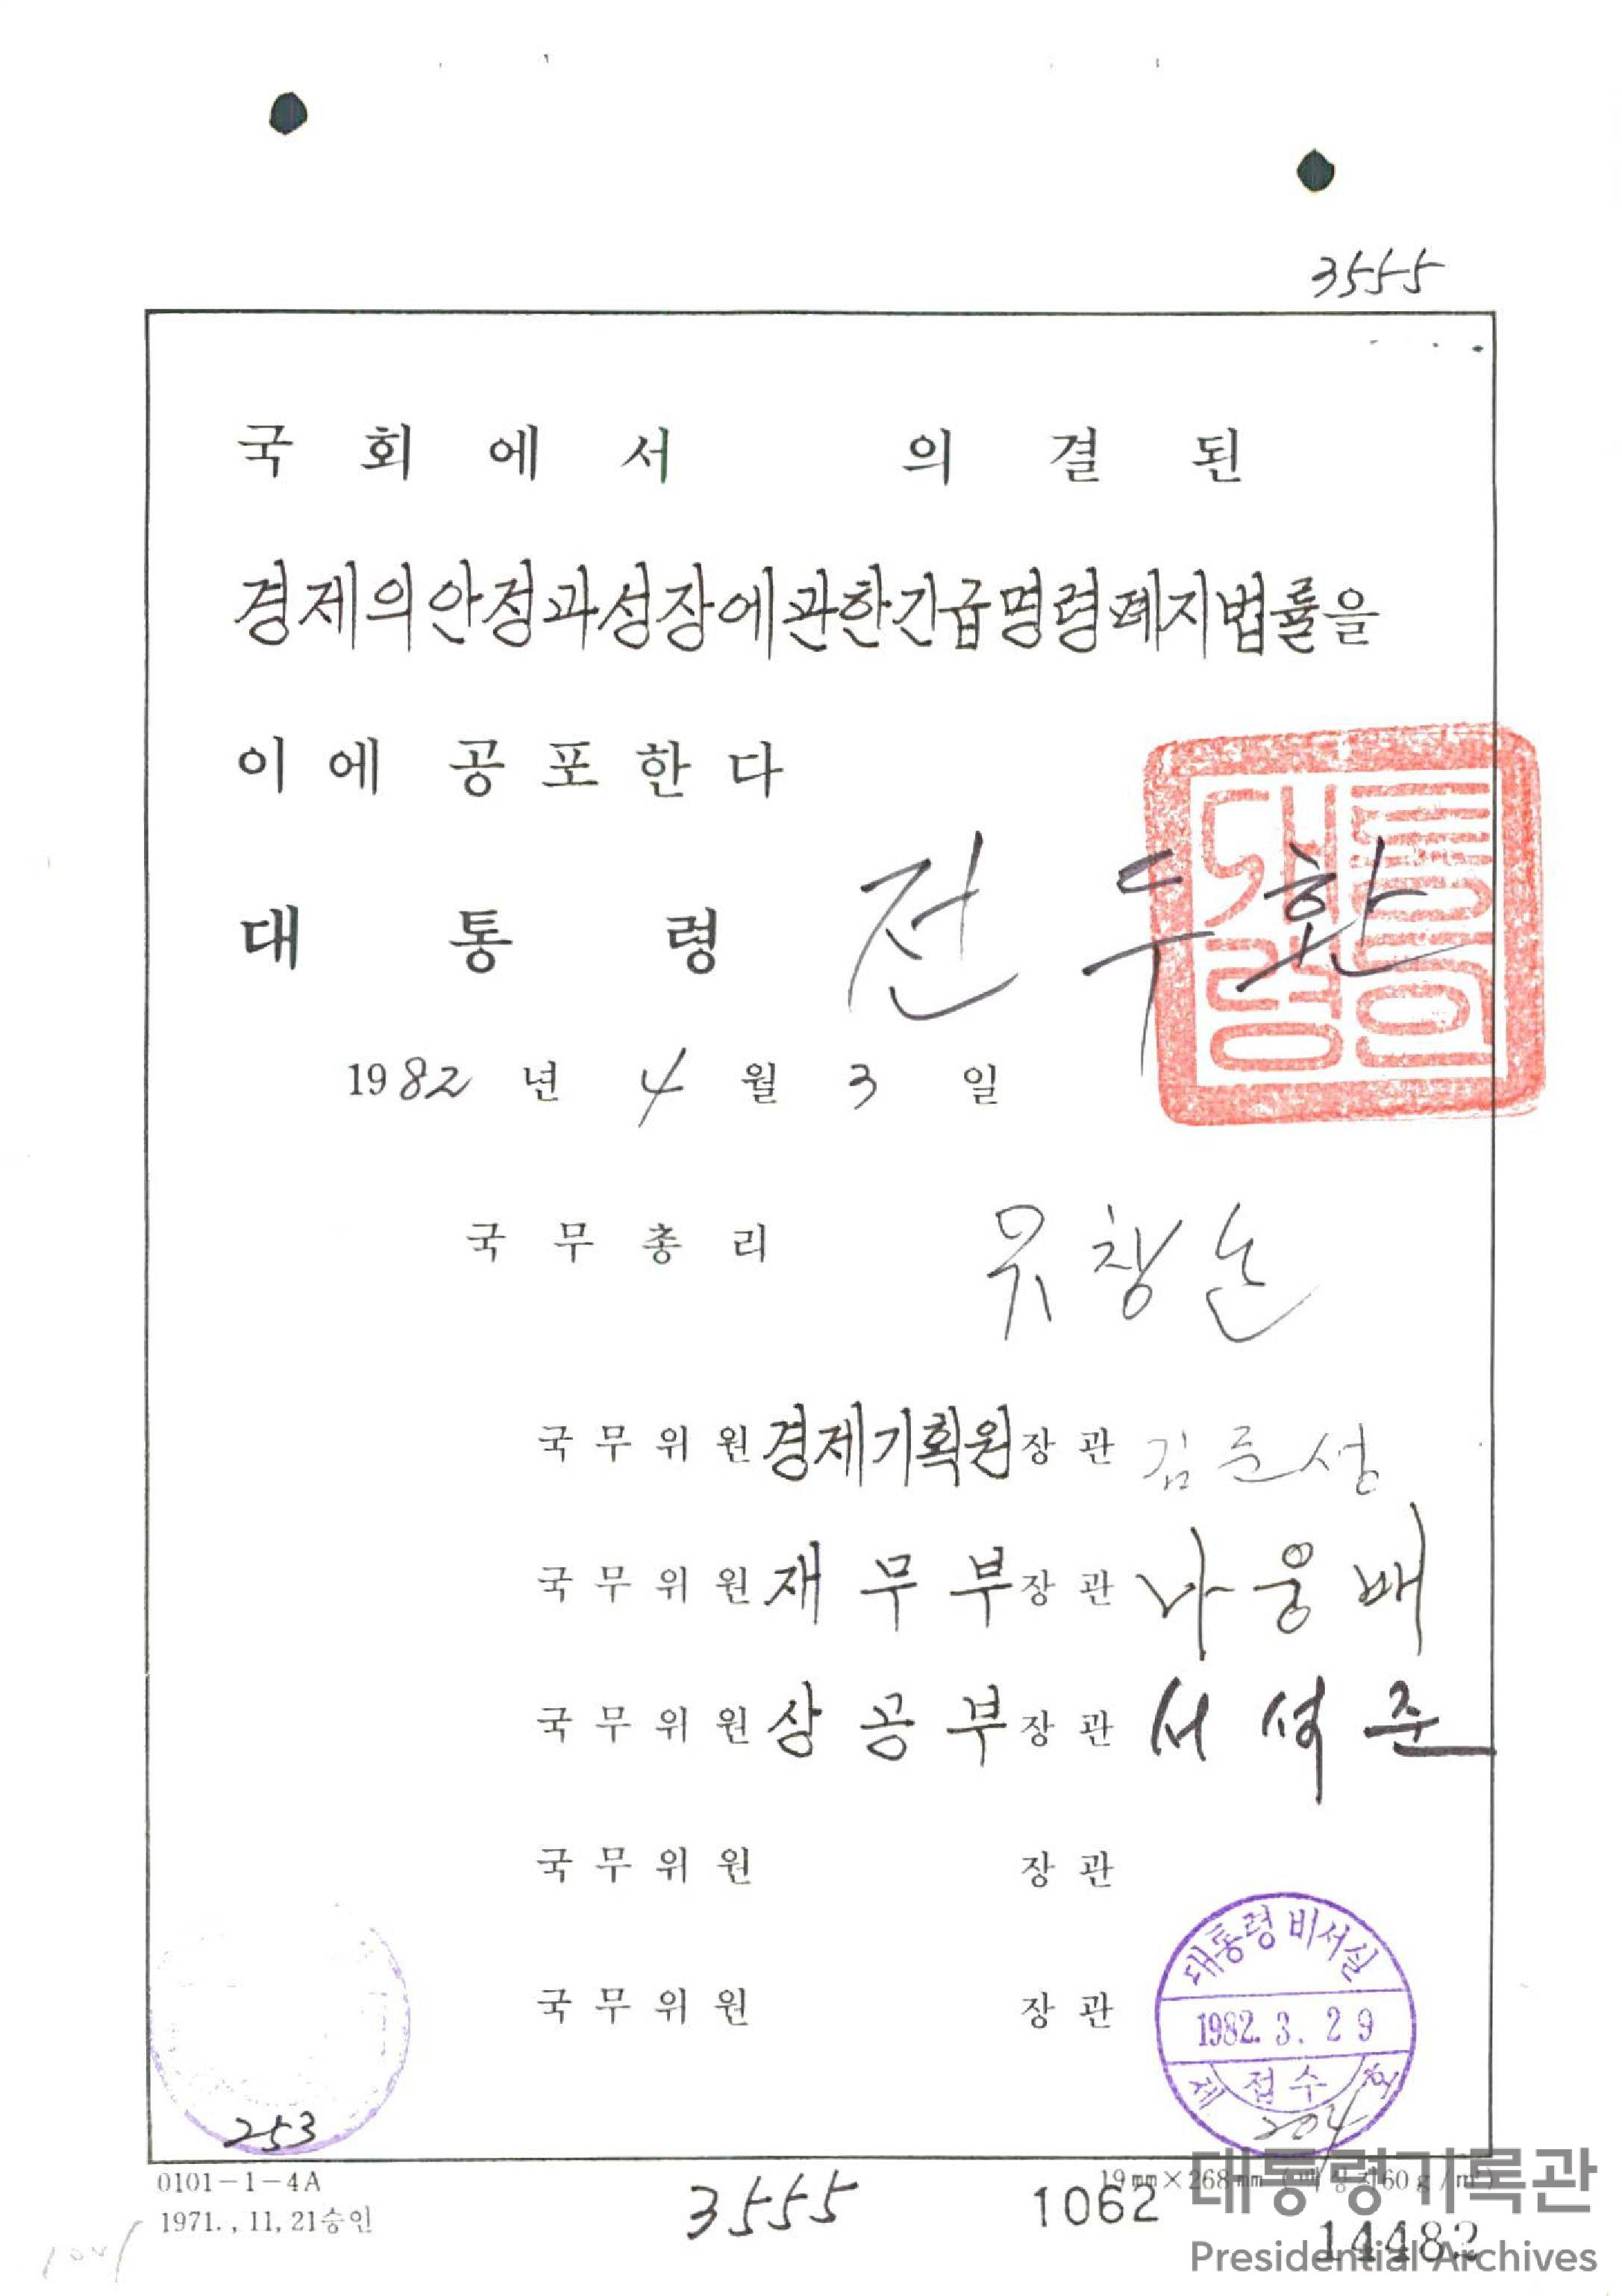 3555
국회에서 의결된
경제의안정과성장에관한긴급명령폐지법률을
이에 공포한다
대통령 전두환
대통령인
1982년 4월 3일
국무총리 유창순
국무위원 경제기획원장관 김준성
국무위원 재무부장관 나웅배
국무위원 상공부장관 서석준
국무위원 장관
국무위원 장관
대통령비서실
1982. 3. 29
제 접수 호
204
253
0101-1-4A
1971., 11, 21승인
3555
1062
14482
대통령기록관
Presidential Archives